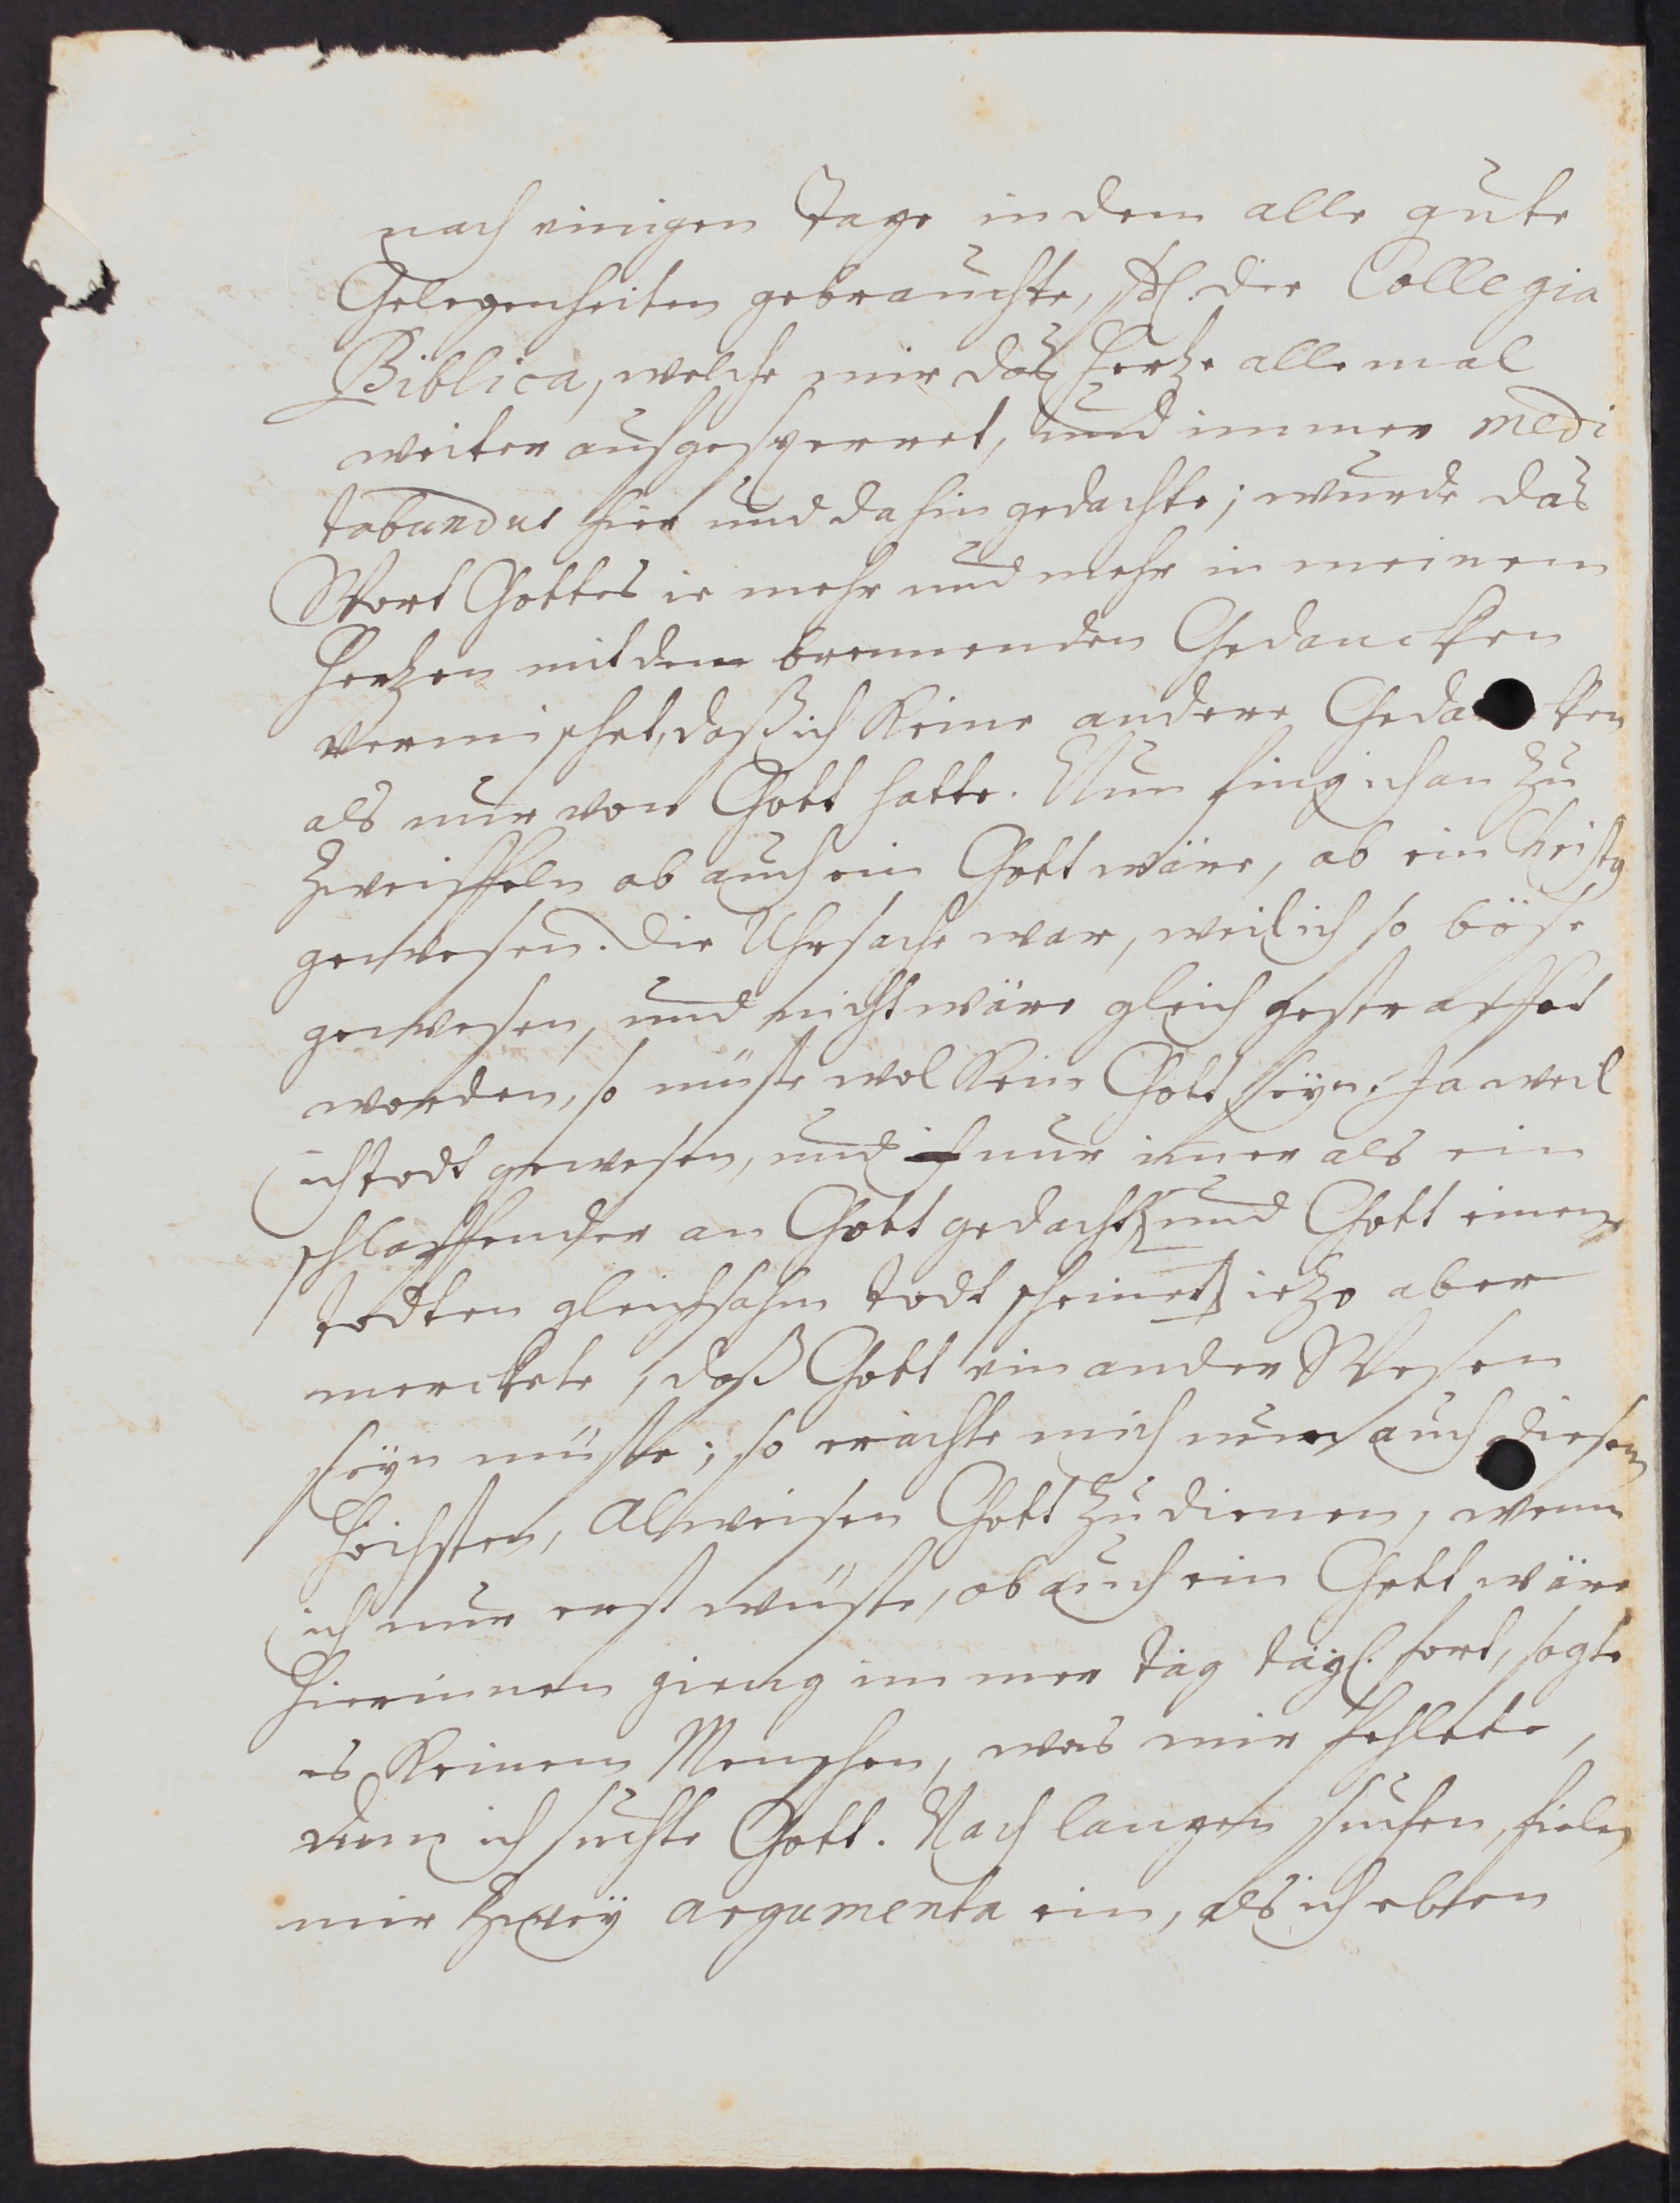 nach einigen Tage indem alle gute
Gelegenheiten gebrauchte, sdl. die Collegia
Biblica, welche mir das Hertze allemal
weiter aufgesperret, und immer medi
tabundus hier und dahin gedachte; wurde das
Wort Gottes ie mehr und mehr in meinem
Hertzen mit dem brennenden Gedancken
vermischet, daß ich keine andere Geda cken
als nur von Gott hatte. Nun fing ich an zu
zweiffeln ob auch ein Gott wäre, ob ein Christus
gewesen. Die Uhrsache war, weil ich so böse
gewesen, und nicht wäre gleich gestraffet
worden, so müste wol kein Gott seyn. Ja weil
ich todt gewesen, und nur imer als ein
schlaffender an Gott gedacht [und Gott einem
todten gleichsahm todt scheinet] ietzo aber
merckete, daß Gott ein ander Wesen
seyn müste; so erachte mich nun auch diesem
Höchsten, Alweisen Gott zu dienen, wenn
ich nur erst wüste, ob auch ein Gott wäre
Hierinnen gieng immer tag tägl. fort, sagte
es keinem Menschen, was mir fehlete,
denn ich suchte Gott. Nach langen suchen, fielen
mir zwey argumenta ein, als ich eben